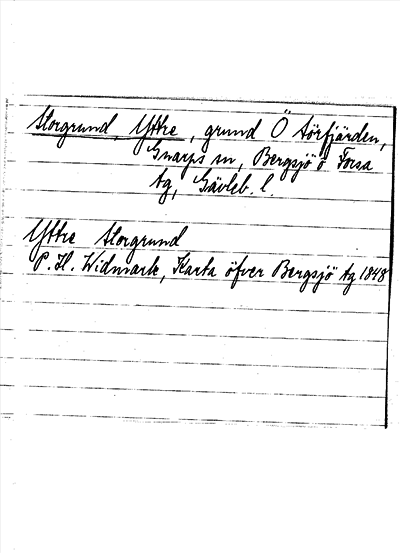 Storgrund, Yttre, grund Ö Sörfjärden,
Gnarps sn, Bergsjö o Forsa
tg, Gävleb. l.
Yttre Storgrund
P. H. Widmark, Karta öfver Bergsjö tg 1848